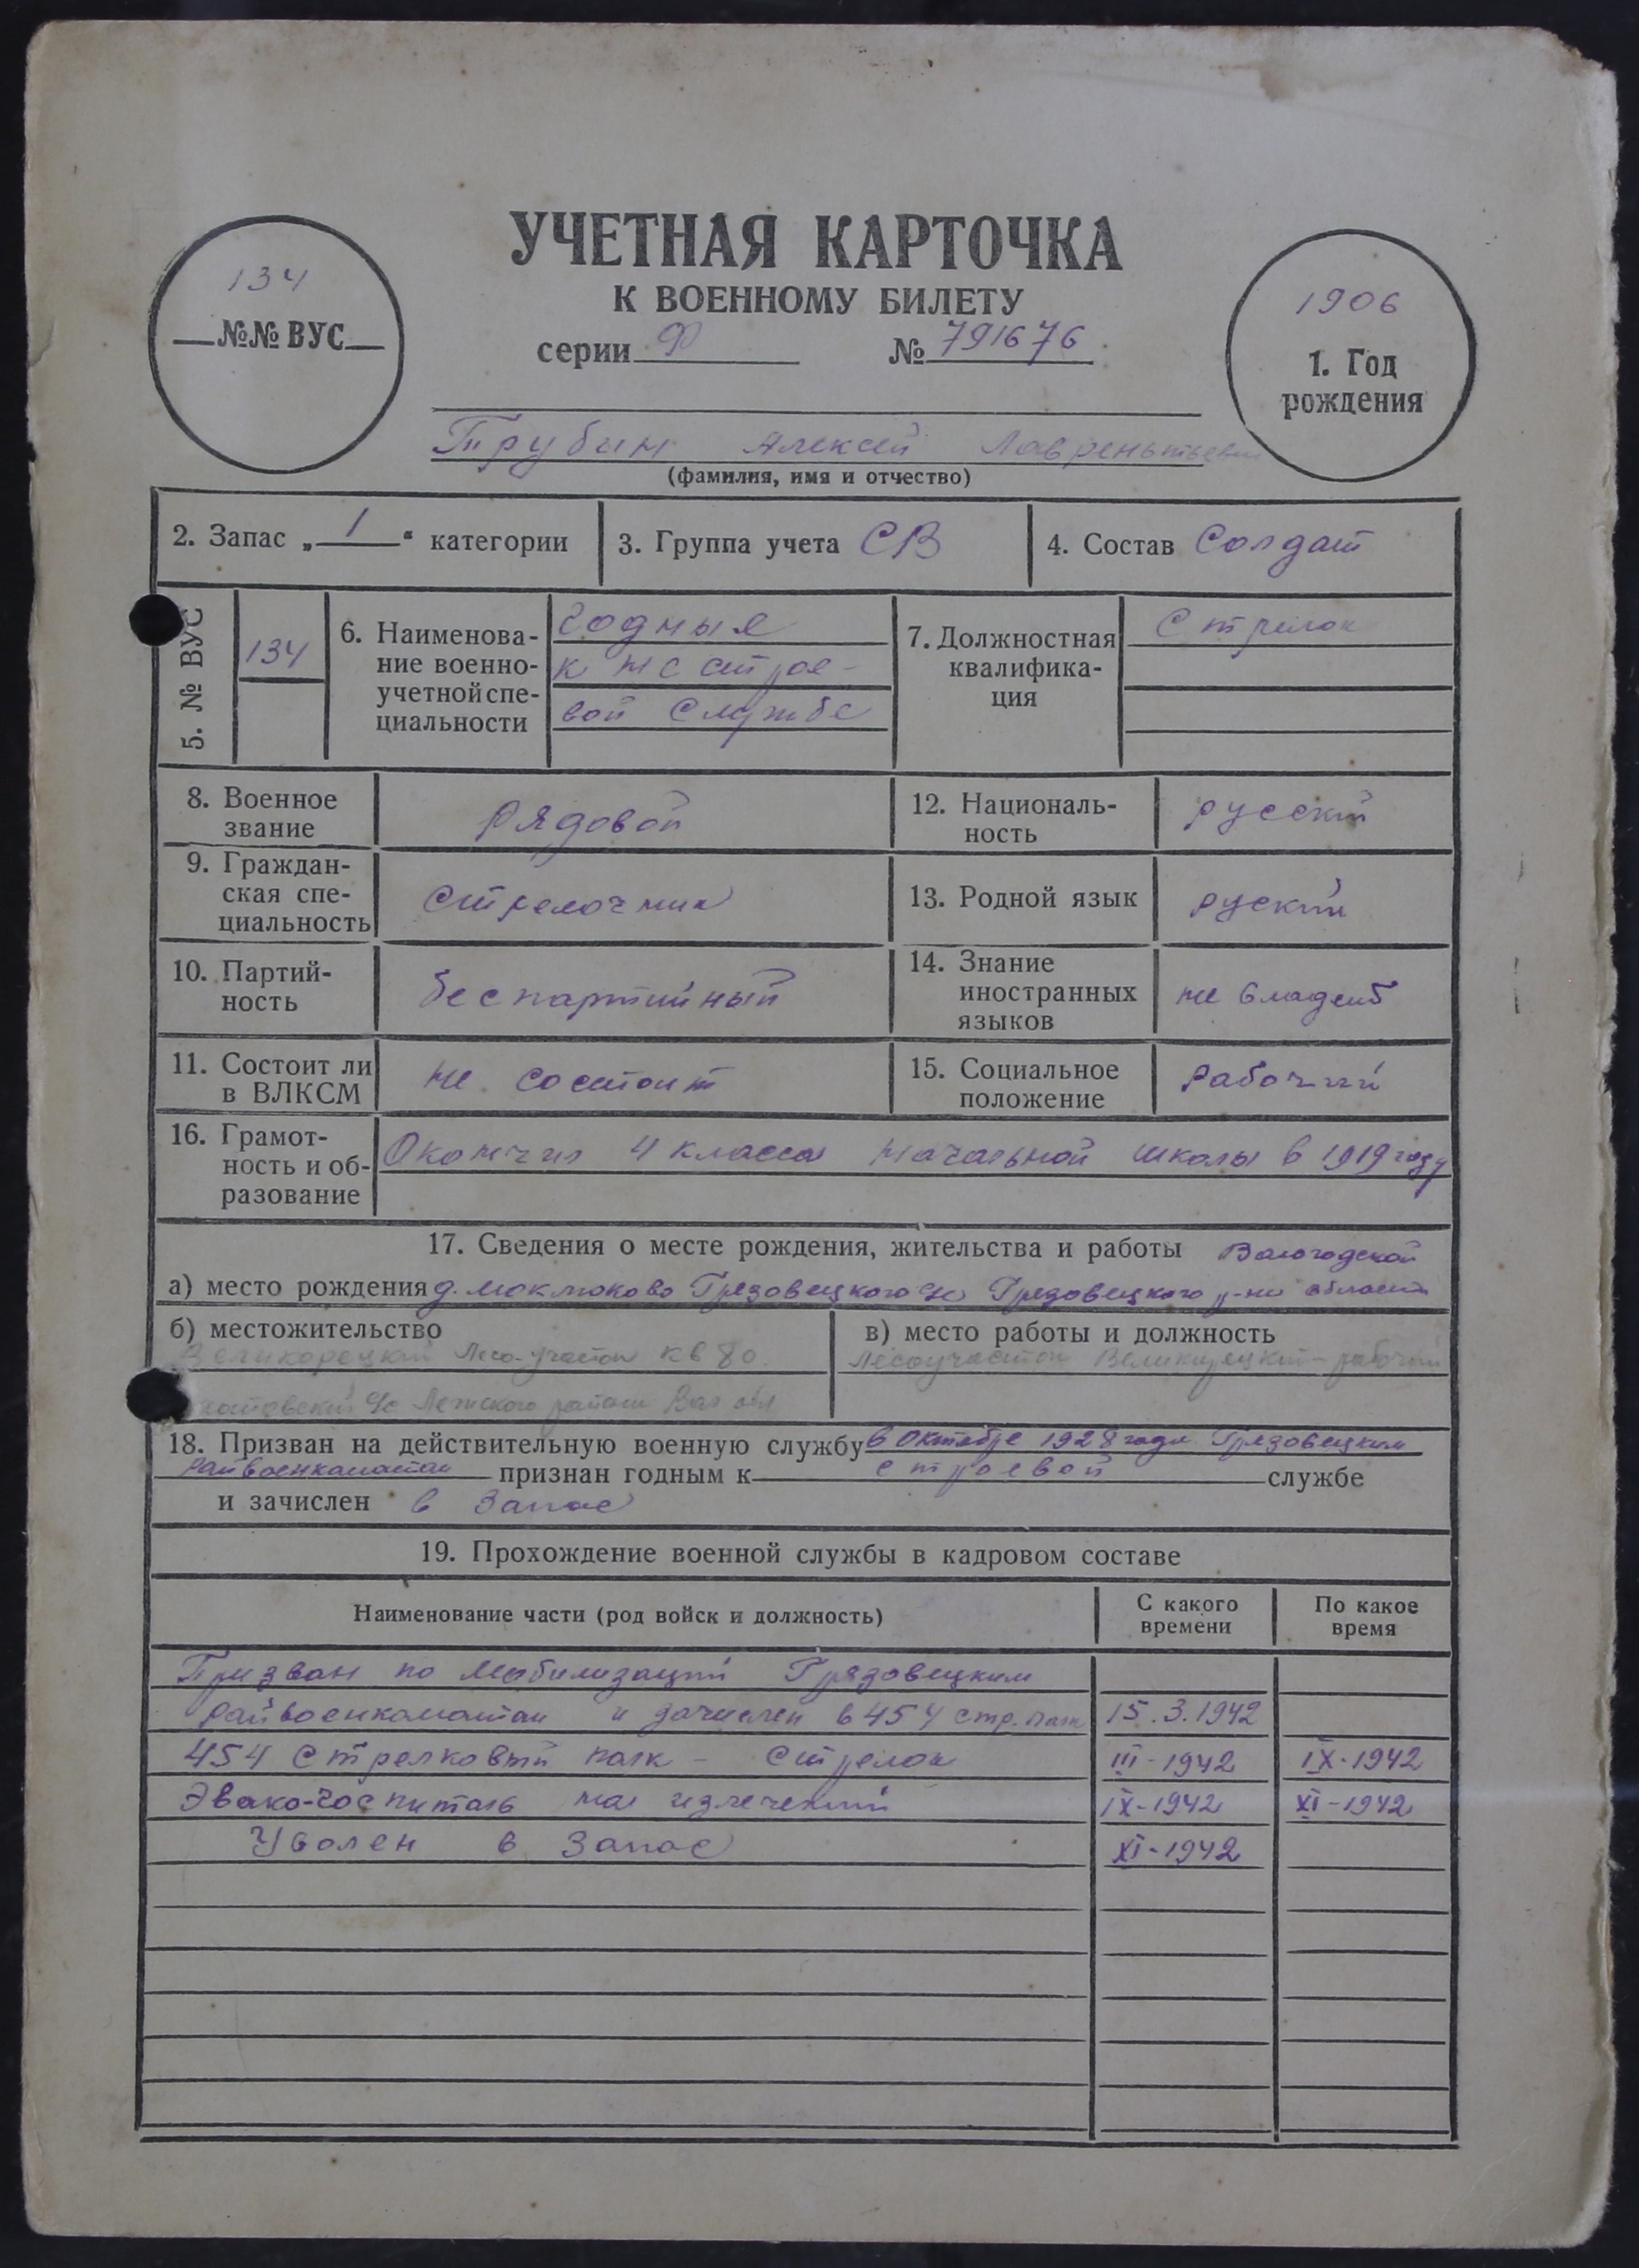 УЧЕТНАЯ КАРТОЧКА
К ВОЕННОМУ БИЛЕТУ
серии Ф № 791676
134
№№ ВУС
1906
1. Год
рождения
Трубин Алексей Лаврентьевич
(фамилия, имя и отчество)
2. Запас „1“ категории
3. Группа учета СВ
4. Состав Солдат
5. № ВУС
134
6. Наименова-
ние военно-
учетной спе-
циальности
Годныя
к нестрое-
вой службе
7. Должностная
квалифика-
ция
Стрелок
8. Военное
звание
рядовой
12. Националь-
ность
русский
9. Граждан-
ская спе-
циальность
стрелочник
13. Родной язык
руский
10. Партий-
ность
беспартийный
14. Знание
иностранных
языков
не владеет
11. Состоит ли
в ВЛКСМ
не состоит
15. Социальное
положение
рабочий
16. Грамот-
ность и об-
разование
Окончил 4 класса начальной школы в 1919 году
17. Сведения о месте рождения, жительства и работы Вологодской
а) место рождения д. Грязовецкого с/с Грязовецкого р-на области
б) местожительство
Великорецкий Лесо-участок кв 80
с/с Лежского района Вол обл
в) место работы и должность
Лесоучасток рабочий
18. Призван на действительную военную службу в Октябре 1928 года Грязовецким
райвоенкоматом признан годным к строевой службе
и зачислен в запас
19. Прохождение военной службы в кадровом составе
Наименование части (род войск и должность)
С какого
времени
По какое
время
Призван по мобилизаций Грязовецким
райвоенкоматом и зачислен в 454 стр. полк 15.3.1942
454 Стрелковый полк - Стрелок III-1942 IX-1942
Эвако-госпиталь на излечений IX-1942 XI-1942
Уволен в запас XI-1942